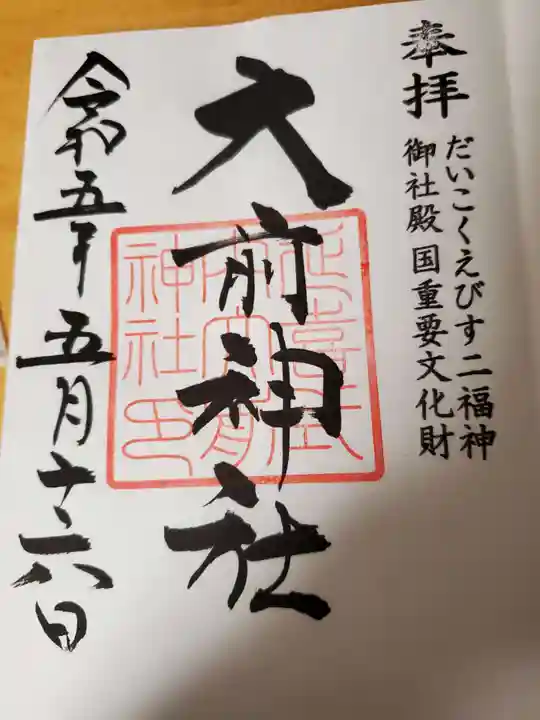 奉拝
だいこくえびす二福神
御社殿 国重要文化財
大前神社
延喜式内大前神社印
令和五年五月十六日